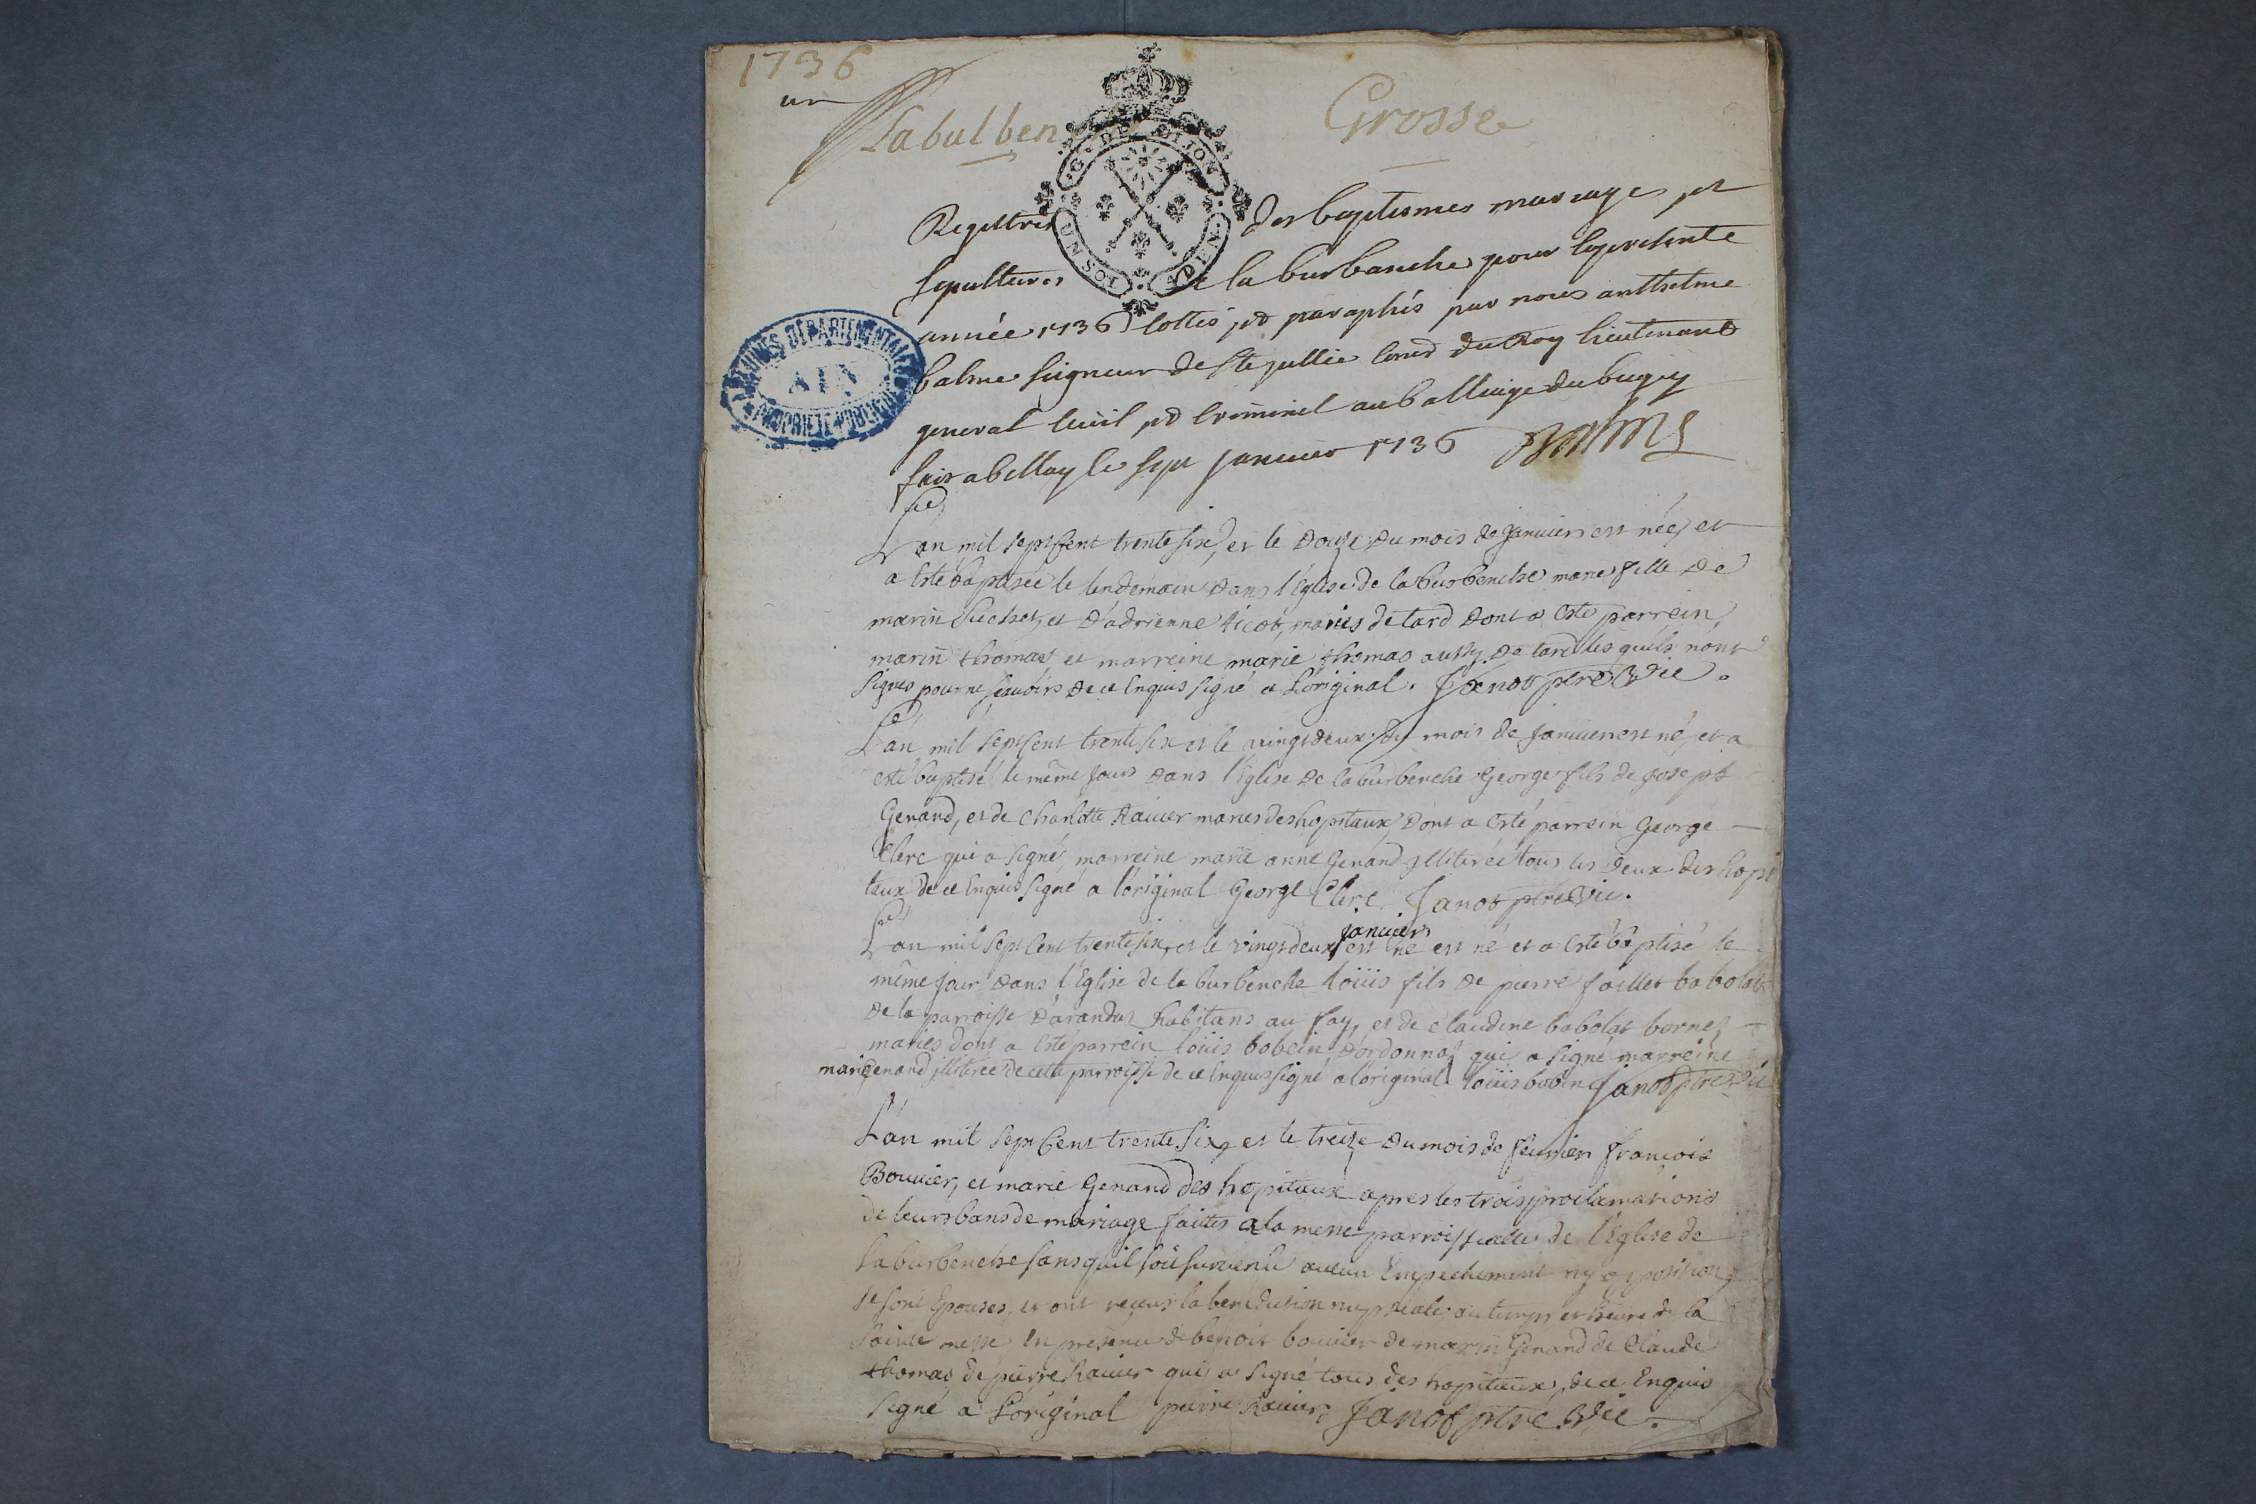 1736
un
Labulben
Grosse
G. DE DIJON
UN SOL
ADEN
Registres des baptismes mariages et
sepultures de la burbanche pour la presente
année 1736 cottés et paraphés par nous anthelme
balme seigneur de Ste jullie Consr du Roy lieutenant
general civil et criminel au balliage du bugey
fait a bellay le sept janvier 1736 Balme
ARCHIVES DÉPARTEMENTALES
AIN
PROPRIÉTÉ PUBLIQUE
L'an mil sept cent trente six, et le douze du mois de janvier est née, et
a esté baptisée le lendemain dans l'Eglise de la burbenche marie fille de
marin Suchet, et d'adrienne ticot, mariés de tard dont a esté parrein,
marin thomas, et marreine marie thomas aussy de tard lesquels n'ont
signés pour ne sçavoirs de ce Enquis signé a L'original. Janot ptre Vic.
L'an mil sept cent trente six et le vingt deux du mois de janvier est né, et a
esté baptisé le même jours dans l'Eglise de la burbenche George fils de joseph
Genand, et de Charlotte Ravier mariés des hopitaux, dont a esté parrein George
Clerc qui a signé, marreine marie anne Genand illiterée tous les deux des hopi
taux de ce Enquis signé a l'original George Clerc. Janot ptre Vic.
janvier
L'an mil sept cent trente six, et le vingt deux est né est né et a esté baptisé le
même jour dans l'Eglise de la burbenche loüis fils de pierre faillet babolat
de la parroisse d'arandas habitans au fay, et de claudine babolat bornez
mariés dont a esté parrein loüis bobein d'ordonnaz qui a signé marreine
marie Genand illiterée de cette parroisse de ce Enquis signé a l'original loüis bobin Janot ptre Vic
L'an mil sept Cent trente six, et le treize du mois de fevrier françois
Bouvier, et marie Genand des hopitaux apres les trois proclamations
de leurs bans de mariage faittes a la messe parroissialle de l'Eglise de
la burbenche sans qu'il soit survenû aucun Empechement ny opposition
se sont Epousés, et ont receus la benediction nuptiale au temps et heure de la
sainte messe En presence de benoit bouvier de marin Genand de Claude
thomas de pierre Ravier qui a signé tous des hopitaux, de ce Enquis
signé a L'original pierre Ravier, Janot ptre Vic.